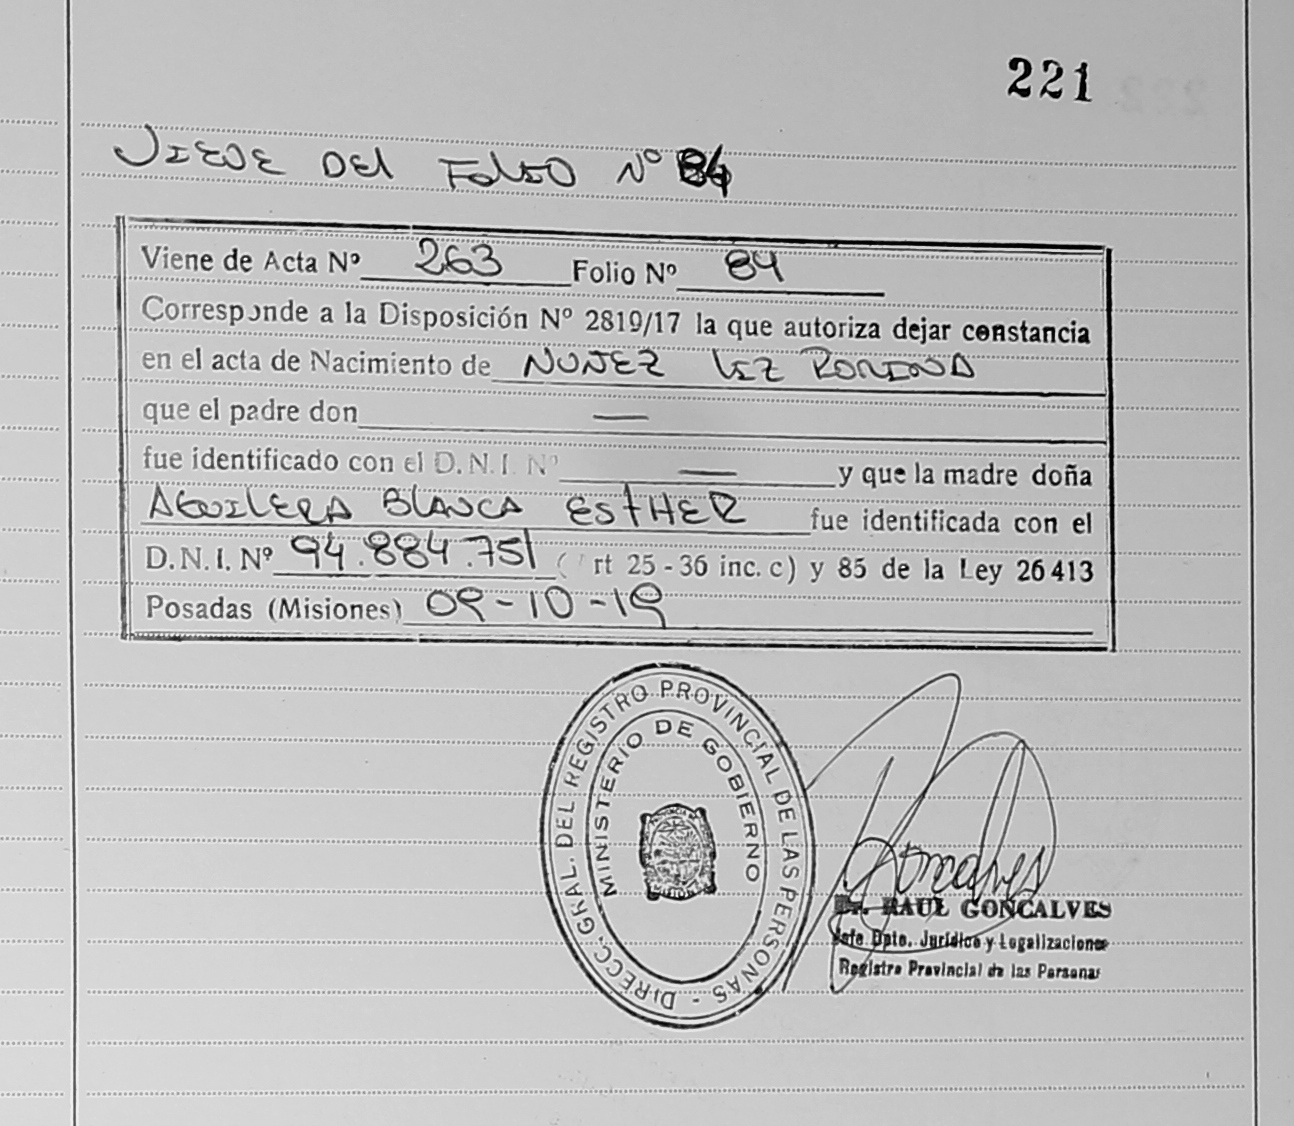 221
VIENE DEL FOLIO Nº 84
Viene de Acta Nº 263 Folio Nº 84
Corresponde a la Disposición Nº 2819/17 la que autoriza dejar constancia
en el acta de Nacimiento de NUÑEZ LIZ ROMINA
que el padre don —
fue identificado con el D.N.I. Nº — y que la madre doña
AGUILERA BLANCA ESTHER fue identificada con el
D.N.I. Nº 94.884.751 (rt 25 - 36 inc. c) y 85 de la Ley 26413
Posadas (Misiones) 09-10-19
DIRECC. GRAL. DEL REGISTRO PROVINCIAL DE LAS PERSONAS -
MINISTERIO DE GOBIERNO
Goncalves
Dr. RAUL GONCALVES
Jefe Dpto. Jurídico y Legalizaciones
Registro Provincial de las Personas